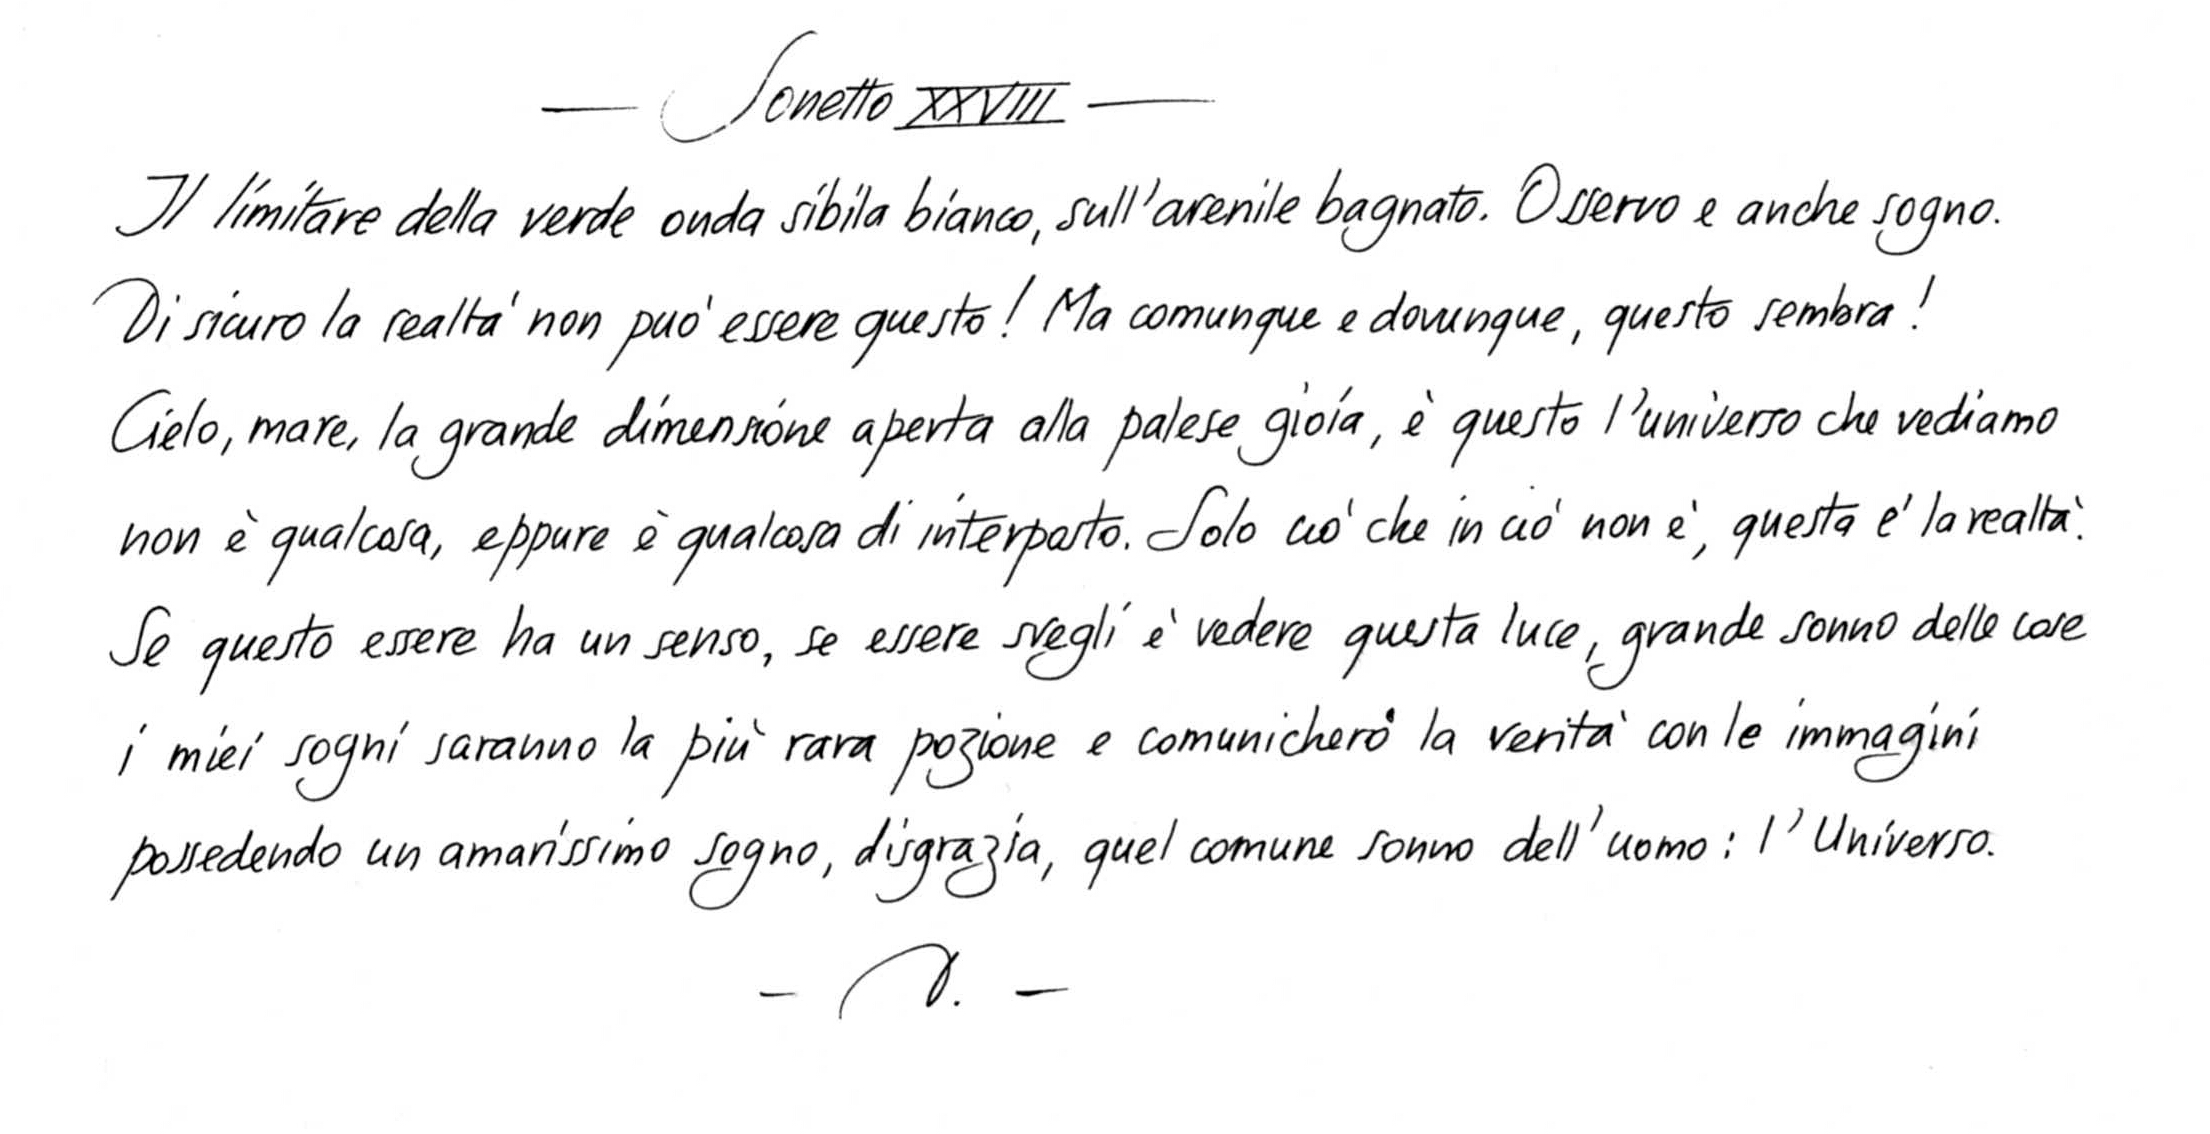 — Sonetto XXVIII —
Il limitare della verde onda sibila bianco, sull'arenile bagnato. Osservo e anche sogno.
Di sicuro la realtà non può essere questo! Ma comunque e dovunque, questo sembra!
Cielo, mare, la grande dimensione aperta alla palese gioia, è questo l'universo che vediamo
non è qualcosa, eppure è qualcosa di interposto. Solo ciò che in ciò non è, questa é la realtà.
Se questo essere ha un senso, se essere svegli è vedere questa luce, grande sonno delle cose
i miei sogni saranno la più rara pozione e comunicherò la verità con le immagini
possedendo un amarissimo sogno, disgrazia, quel comune sonno dell'uomo: l'Universo.